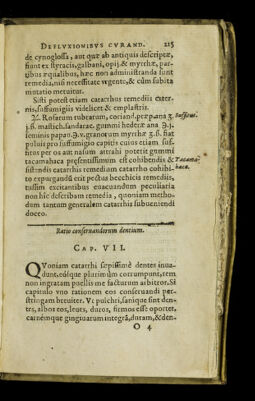 DEFLVXIONIBVS CVRAND. 215
de cynoglossa, aut quæ ab antiquis descriptæ,
fiunt ex styracis, galbani, opij, & myrrhæ, par-
tibus æqualibus, hæc non administranda sunt
remedia, nisi necessitate vrgente, & cùm subita
mutatio metuitur.
Sisti potest etiam catarrhus remediis exter-
nis, suffumigiis videlicet & emplastris.
Rosarum rubrarum, coriand. præp. ana ʒ. Suffitus.
j. ß. mastich. sandarac. gummi hederæ ana ʒ. j.
seminis papau. ʒ. v. granorum myrrhæ ʒ. ß. fiat
puluis pro suffumigio capitis cuius etiam suf-
fitus per os aut nasum attrahi potest: gummi
tacamahaca præsentissimum est cohibendis & Tacama-
sistendis catarrhis remedium catarrho cohibi- haca.
to expurgandũ erit pectus bechicis remediis,
tussim excitantibus euacuandum peculiaria
non hîc describam remedia, quoniam metho-
dum tantum generalem catarrhis subueniendi
doceo.
Ratio conseruandorum dentium.
CAP. VII.
QVoniam catarrhi sæpissimè dentes inua-
dunt, eósque plurimùm corrumpunt, rem
non ingratam puellis me facturum arbitror. Si
capitulo vno rationem eos conseruandi per-
stringam breuiter. Vt pulchri, sanique sint den-
tes, albos eos, leues, duros, firmos esse oportet,
carnémque gingiuarum integrã, duram, & den-
O 4